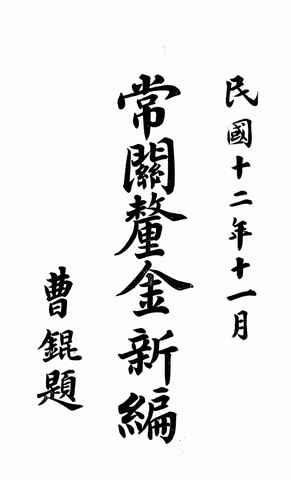 民國十二年十一月
常關釐金新編
曹錕題